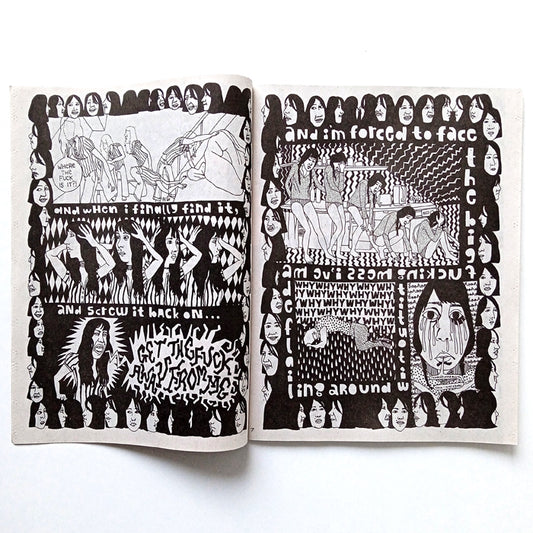 WHERE
THE
FUCK
IS IT?!
and when i finally find it,
and screw it back on...
GET THE FUCK
AWAY FROM ME
and i'm forced to face
the big f
ucking mess i've ma
de flai
ling around w
ithout it
WHYWHYWHYWHYWHY
WHYWHYWHYWHYWHY